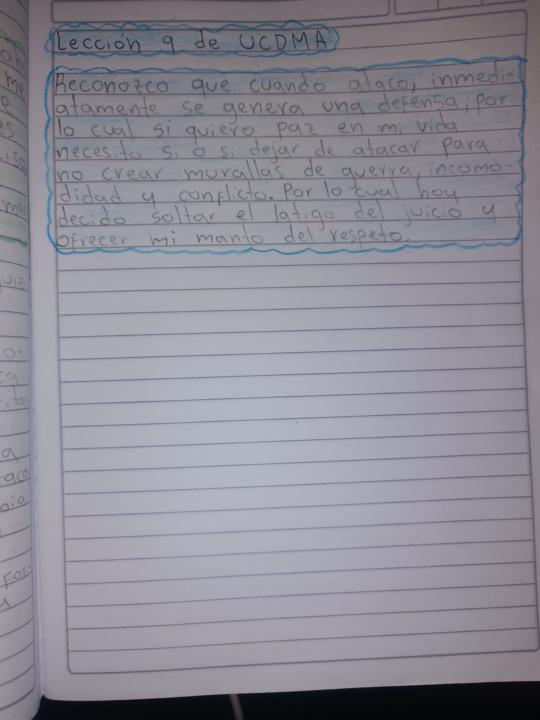 Lección 9 de UCDMA
Reconozco que cuando ataco, inmedi-
atamente se genera una defensa; por
lo cual si quiero paz en mi vida
necesito si o si dejar de atacar para
no crear murallas de guerra, incomo-
didad y conflicto. Por lo cual hoy
decido soltar el latigo del juicio y
ofrecer mi manto del respeto.